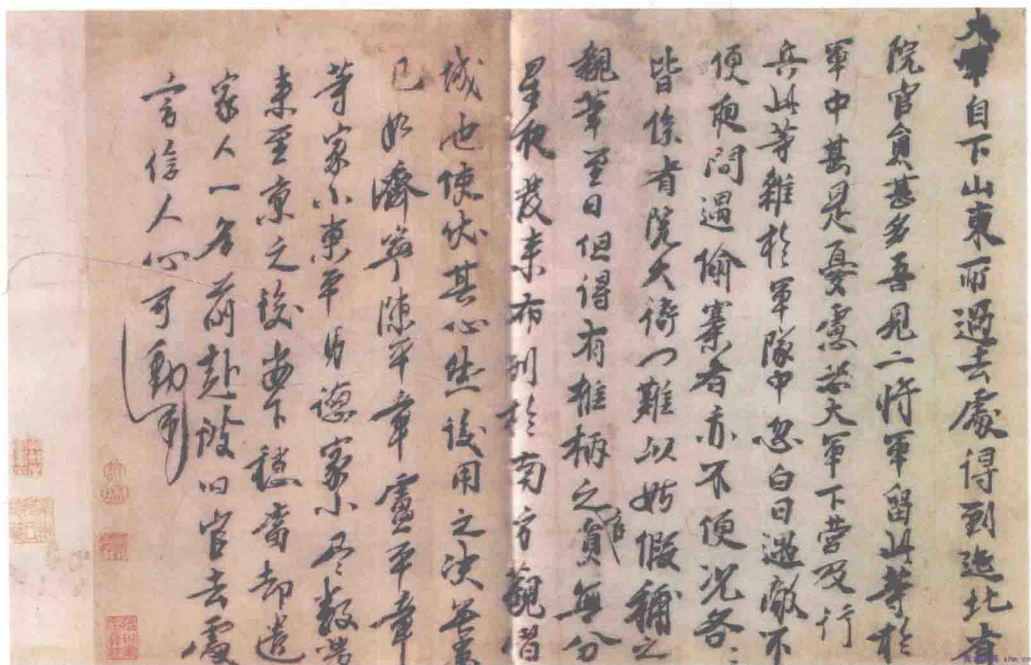 大軍自下山東所過去處得到迤北省
院官員甚多吾見二將軍留此等於
軍中甚是憂慮恐大軍下營及行
兵此等雜於軍隊中忽白日遇敵不
便夜間遇偷寨者亦不便況各〻
皆係省院大衙门難以姑假補之
親筆至日但得有椎柄之官員無分
星夜發來布列於南方觀
城池使伏其心然後用之決無患
已如濟寧陳平章盧平章
等家小東平馬德家小尽數發
來至京之後安下穩當却遣
家人一名前赴彼旧官去處
言信人心可動